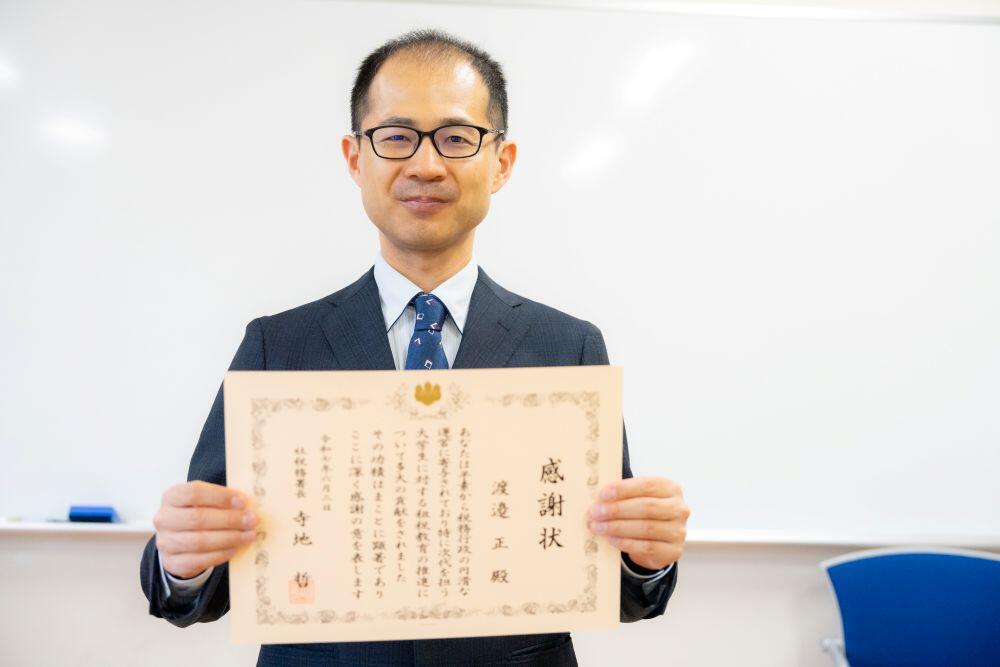 感謝状
渡邉 正 殿
あなたは平素から税務行政の円滑な
運営に寄与されており特に次代を担う
大学生に対する租税教育の推進に
ついて多大の貢献をされました
その功績はまことに顕著であり
ここに深く感謝の意を表します
令和七年六月二日
社税務署長 寺地 哲